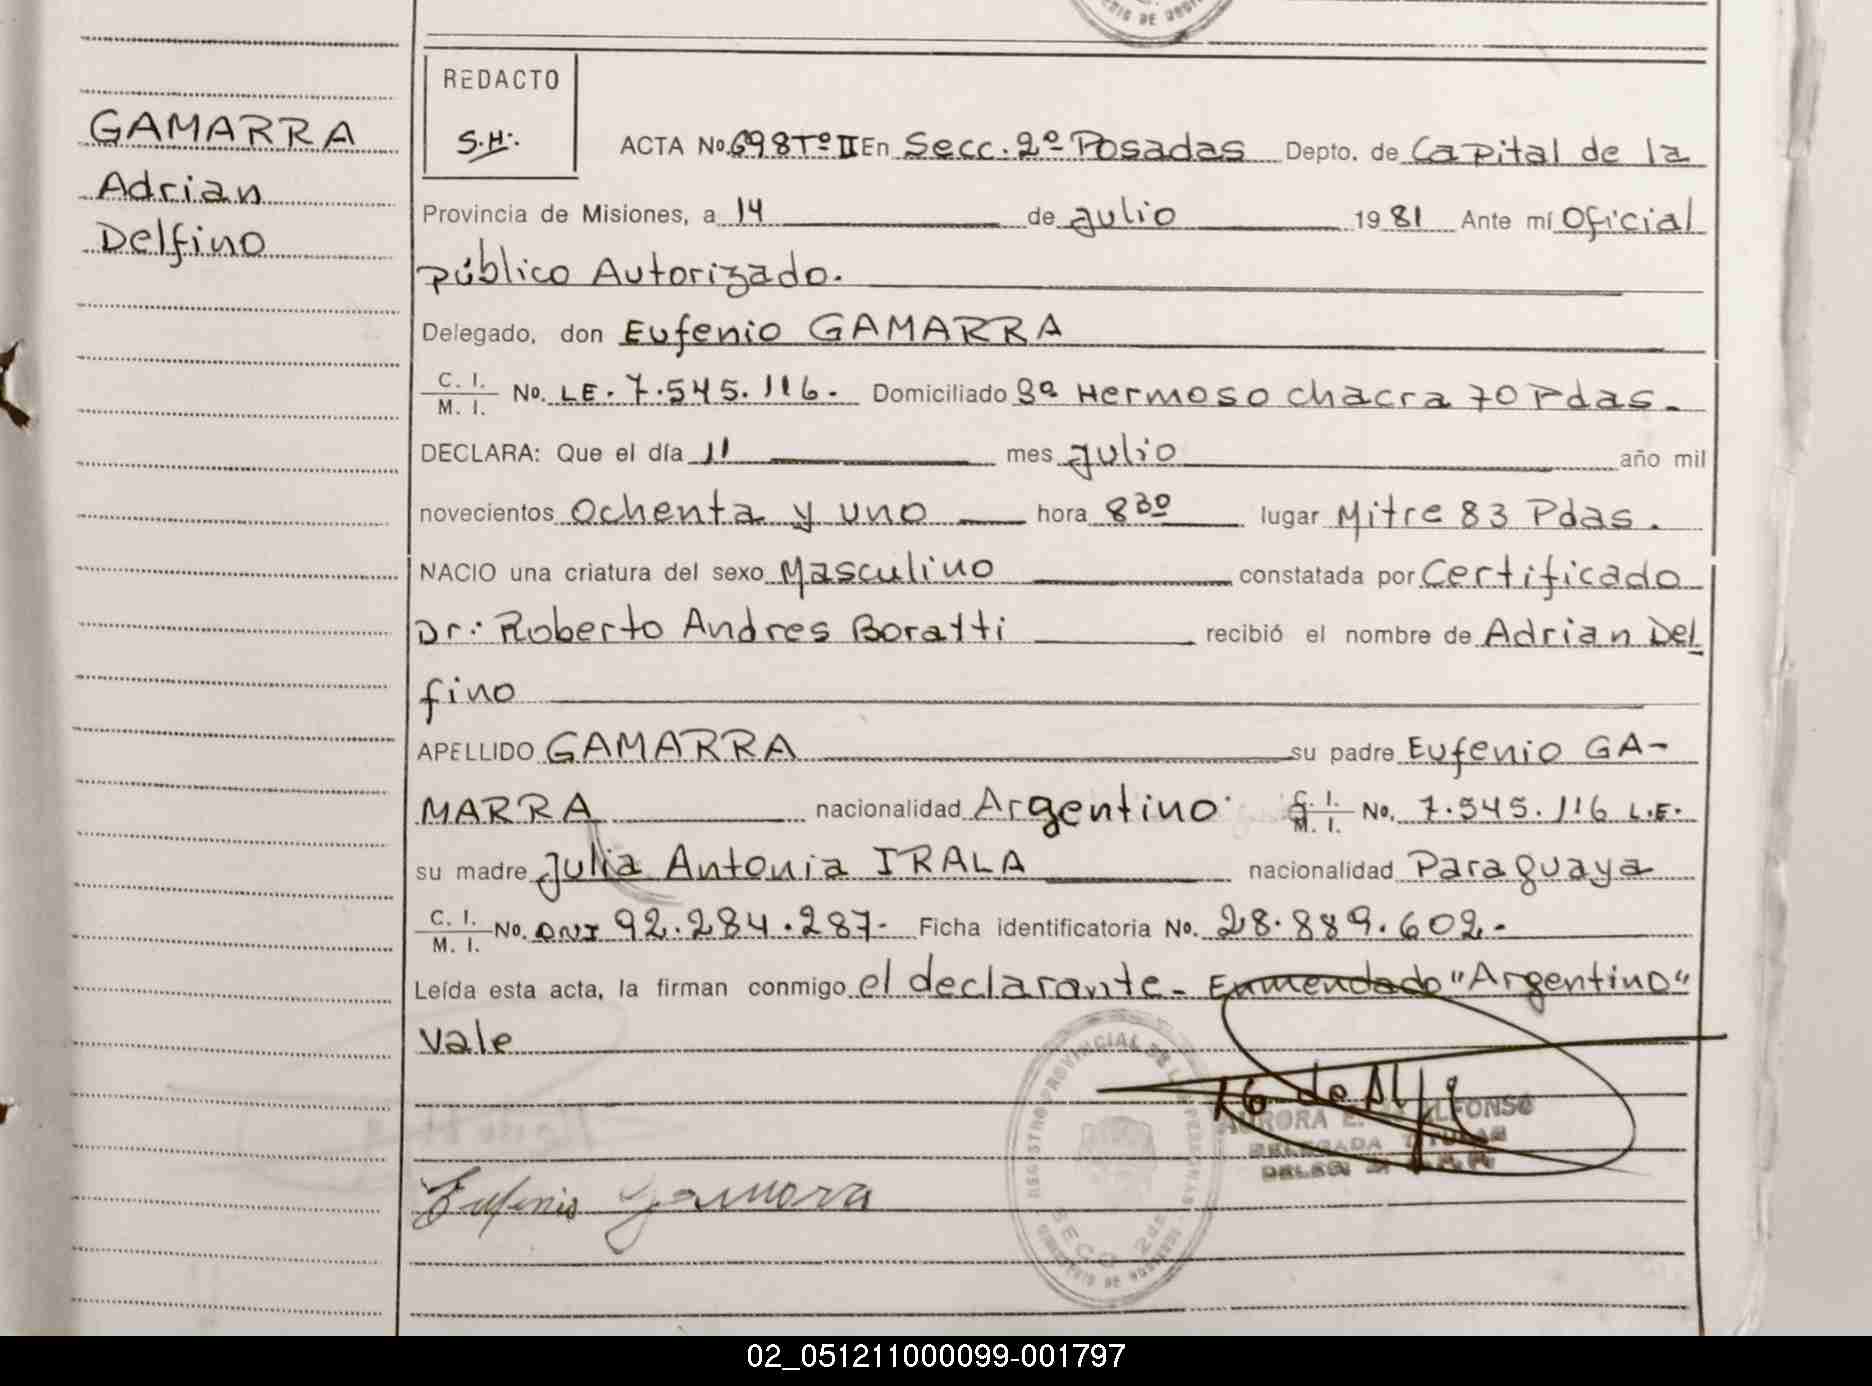 GAMARRA
Adrian
Delfino
REDACTO
S.H:.
ACTA No. 698 Tº II En Secc. 2º Posadas Depto. de Capital de la
Provincia de Misiones, a 14 de Julio 1981 Ante mí Oficial
público Autorizado.
Delegado, don Eufenio GAMARRA
C. I. / M. I. No. LE. 7.545.116.- Domiciliado Hermoso chacra 70 Pdas.-
DECLARA: Que el día 11 mes Julio año mil
novecientos Ochenta y uno hora 8 30 lugar Mitre 83 Pdas.
NACIO una criatura del sexo Masculino constatada por Certificado
Dr: Roberto Andres Boratti recibió el nombre de Adrian Del
fino
APELLIDO GAMARRA su padre Eufenio GA-
MARRA nacionalidad Argentino C. I. / M. I. No. 7.545.116 L.E.
su madre Julia Antonia IRALA nacionalidad Paraguaya
C. I. / M. I. No. DNI 92.284.287- Ficha identificatoria No. 28.889.602.-
Leída esta acta, la firman conmigo el declarante.- Enmendado "Argentino"
Vale
REGISTRO PROVINCIAL DE LAS PERSONAS
SECC 2da
AURORA E. ALFONSO
DELEGADA TITULAR
Eufenio Gamarra
02_051211000099-001797